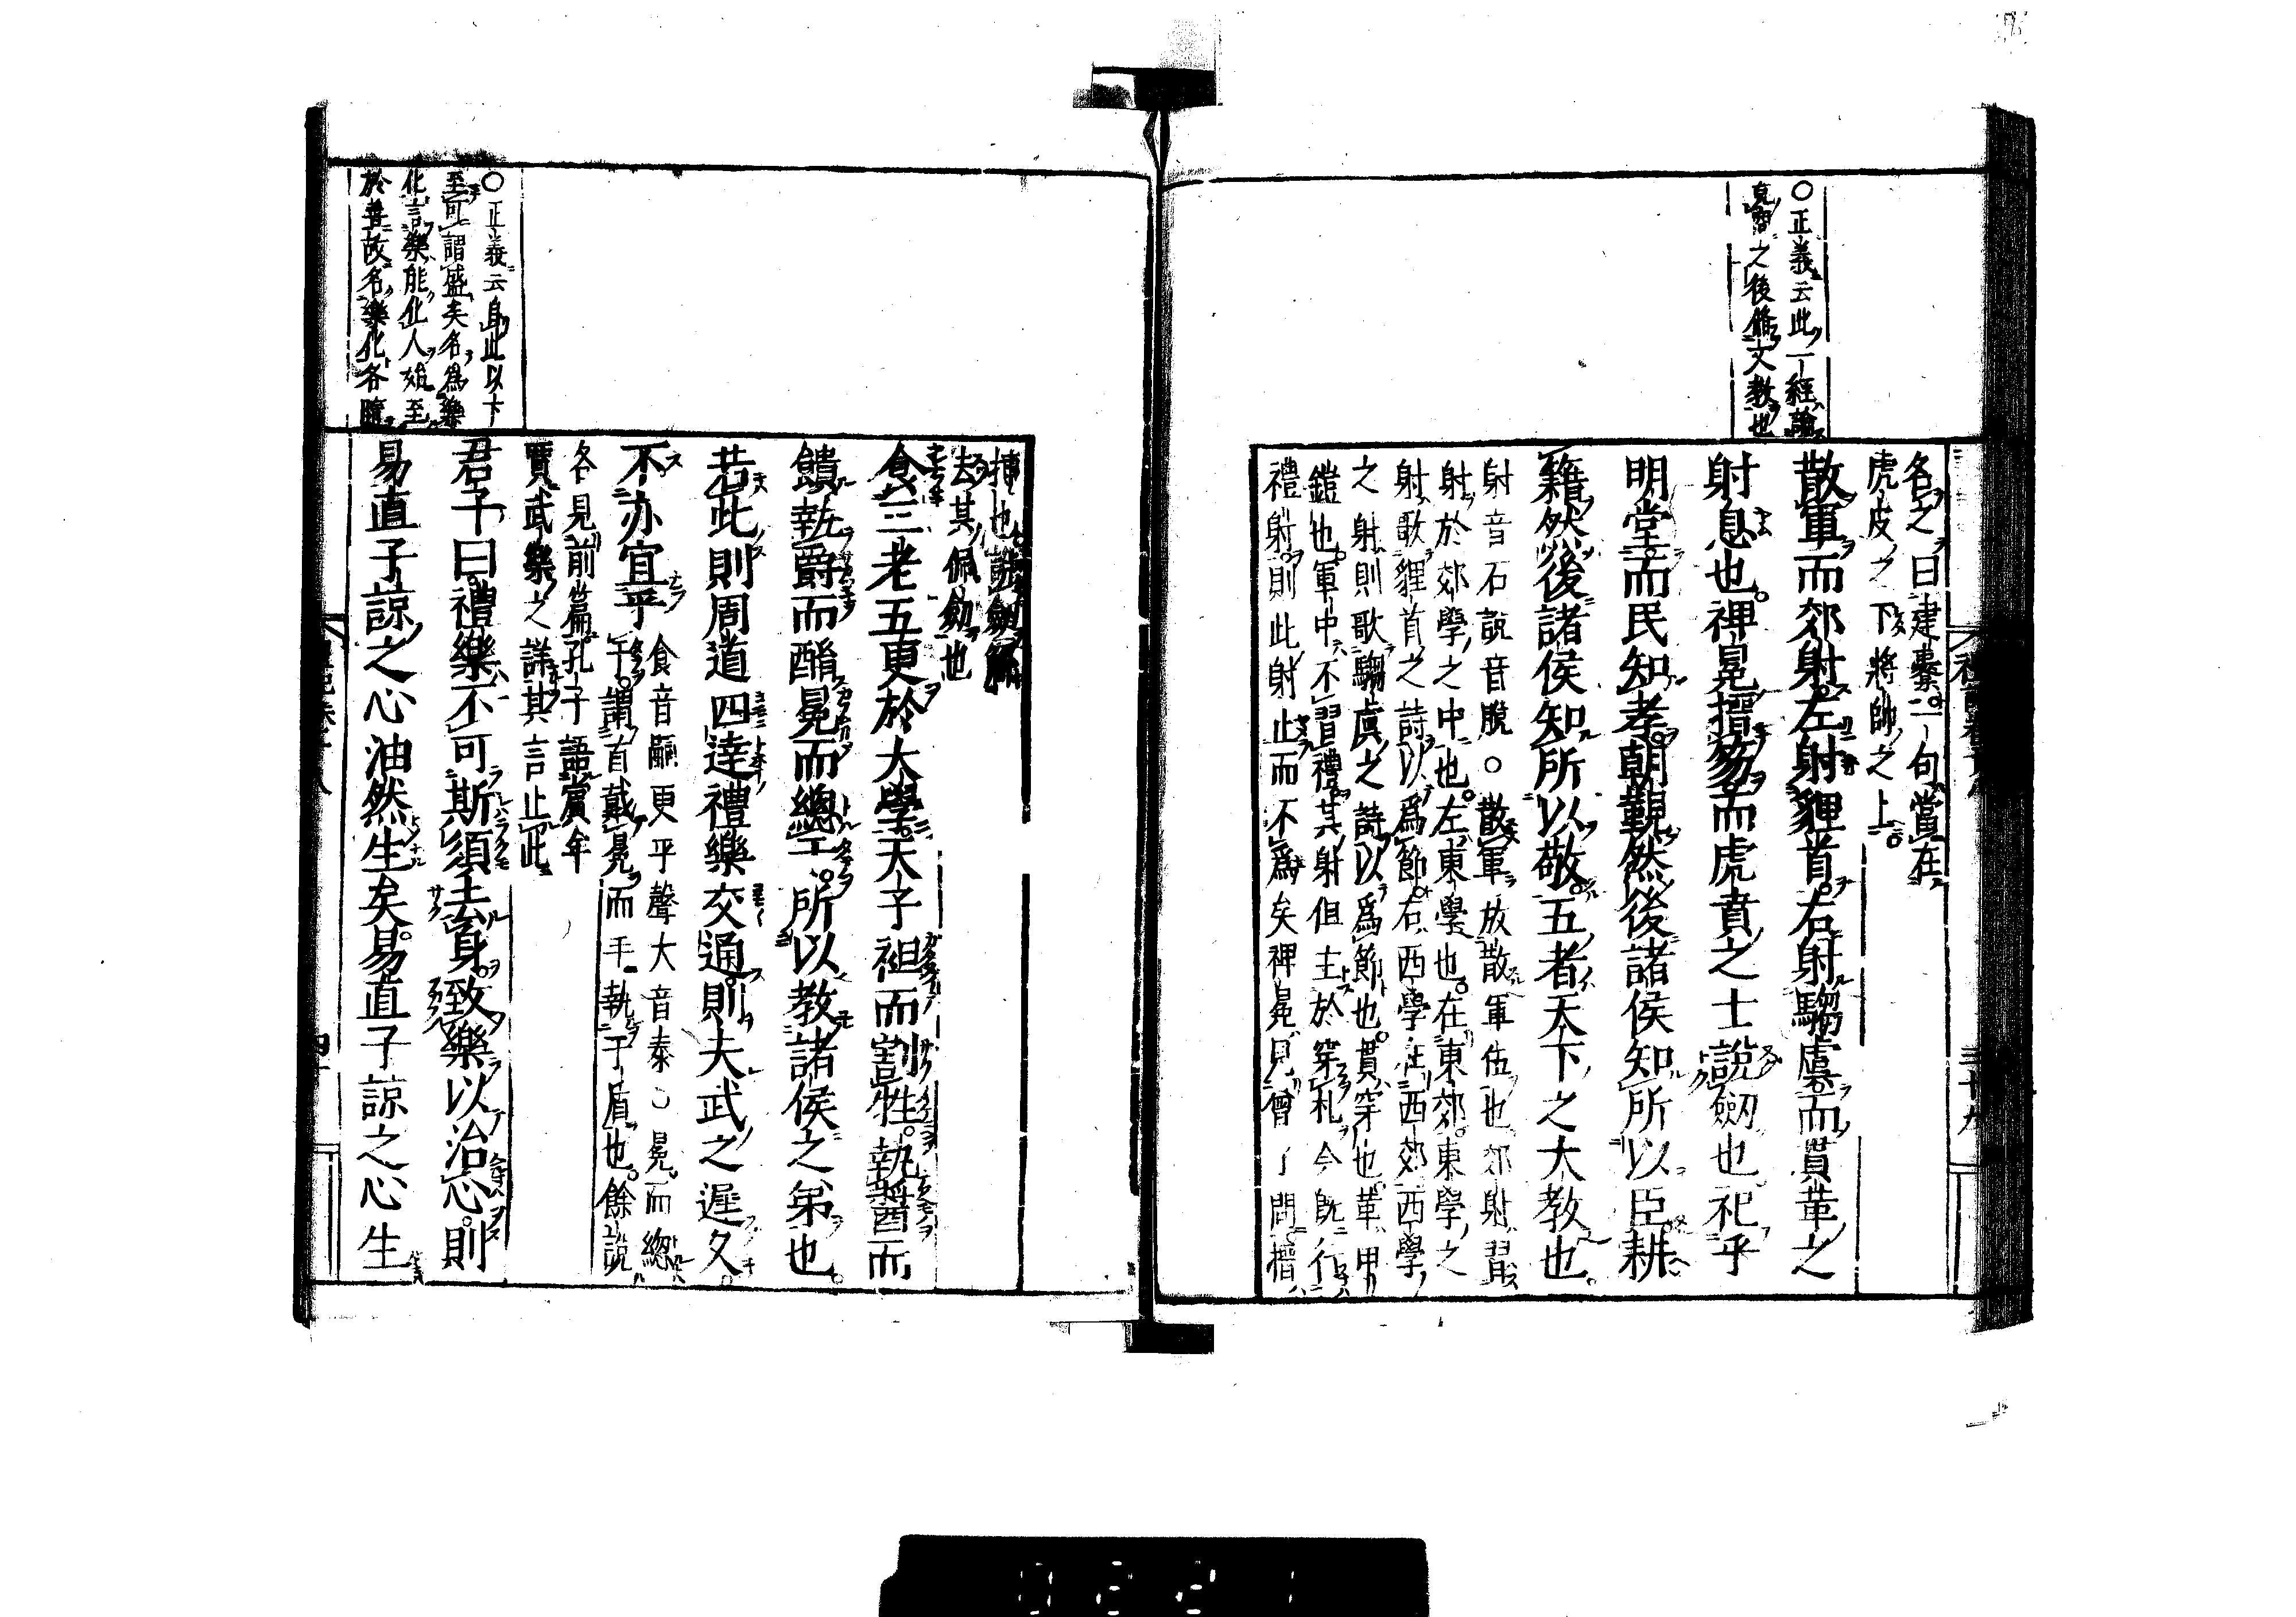 ○正義云此一經論
克商之後脩文教也
名之曰建櫜二句當在
虎皮之下將帥之上
散軍而郊射左射貍首右射騶虞而貫革之
射息也裨冕搢笏而虎賁之士說劒也祀乎
明堂而民知孝朝覲然後諸侯知所以臣耕
籍然後諸侯知所以敬五者天下之大教也
射音石說音脫○散軍放散軍伍也郊射習
射於郊學之中也左東學也在東郊東學之
射歌貍首之詩以爲節右西學在西郊西學
之射則歌騶虞之詩以爲節也貫穿也革甲
鎧也軍中不習禮其射但主於穿札今既行
禮射則此射止而不爲矣裨冕見曾子問搢
插也說劒解
去其佩劒也
食三老五更於大學天子袒而割牲執醬而
饋執爵而酳冕而總干所以教諸侯之弟也
若此則周道四達禮樂交通則夫武之遲久
不亦宜乎
食音嗣更平聲大音泰○冕而總
干謂首戴冕而手執干盾也餘說
各見前篇孔子語賓牟
賈武樂之詳其言止此
○正義云自此以下
至可謂盛矣名爲樂
化言樂能化人始至
於善故名樂化各隨
君子曰禮樂不可斯須去身致樂以治心則
易直子諒之心油然生矣易直子諒之心生
0221